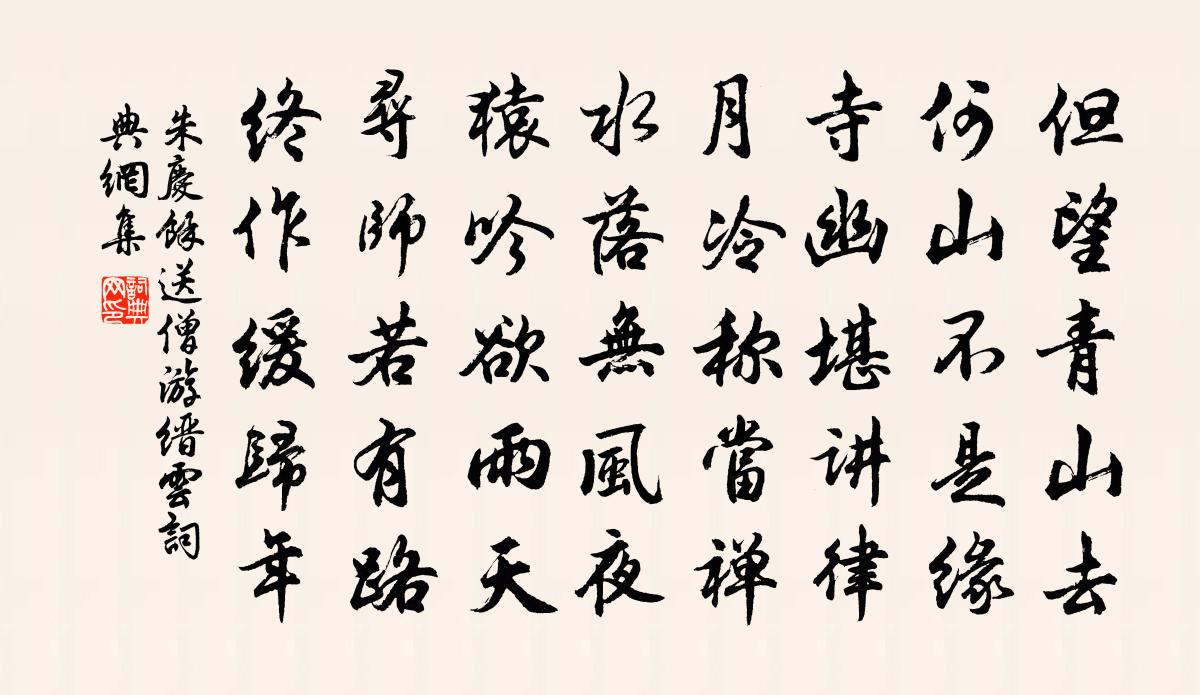 但望青山去
何山不是缘
寺幽堪讲律
月冷称當禅
水落無風夜
猿吟欲雨天
尋師若有路
终作缓歸年
朱慶餘送僧游缙雲詞
典網集
詞典
网印